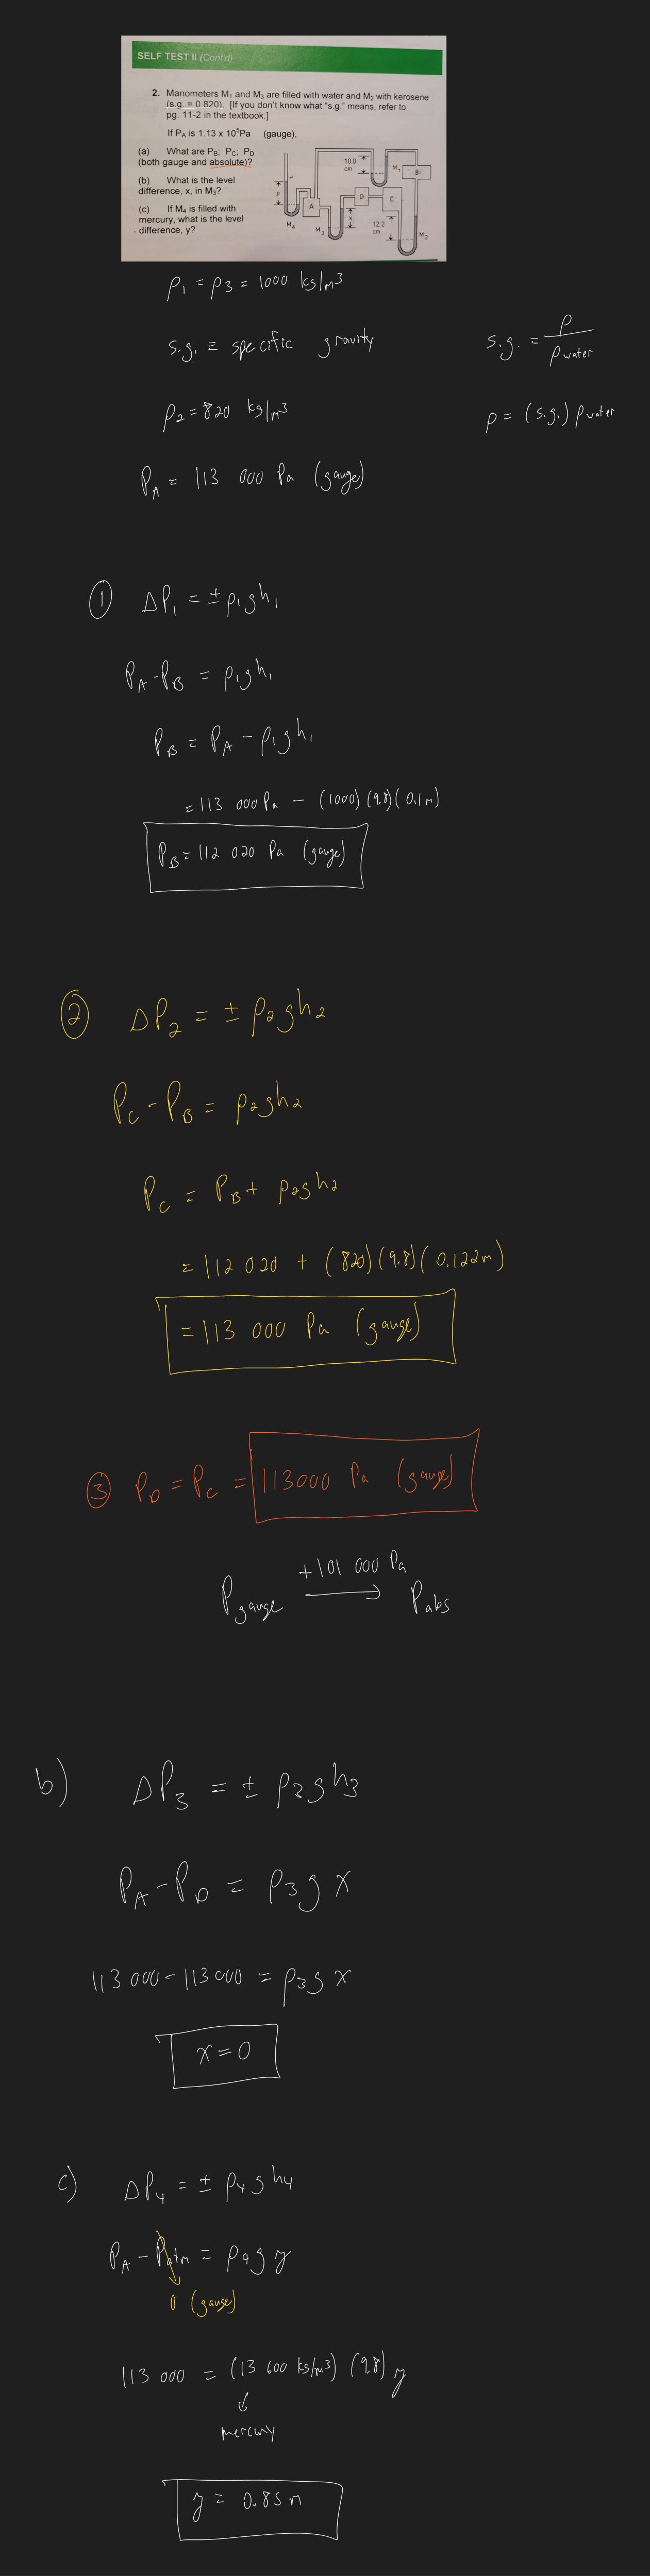 SELF TEST II (Cont'd)
2. Manometers M₁ and M₃ are filled with water and M₂ with kerosene
(s.g. = 0.820). [If you don't know what "s.g." means, refer to
pg. 11-2 in the textbook.]
If PA is 1.13 x 10⁵Pa (gauge),
(a) What are PB; PC; PD
(both gauge and absolute)?
(b) What is the level
difference, x, in M₃?
(c) If M₄ is filled with
mercury, what is the level
difference, y?
10.0
cm
M₁
B
y
D
C
A
x
12.2
cm
M₄
M₃
M₂
ρ₁ = ρ₃ = 1000 kg/m³
s.g. ≡ specific gravity
s.g. = ρ / ρwater
ρ₂ = 820 kg/m³
ρ = (s.g.) ρwater
PA = 113 000 Pa (gauge)
① ΔP₁ = ± ρ₁gh₁
PA - PB = ρ₁gh₁
PB = PA - ρ₁gh₁
= 113 000 Pa - (1000)(9.8)(0.1m)
PB = 112 020 Pa (gauge)
② ΔP₂ = ± ρ₂gh₂
PC - PB = ρ₂gh₂
PC = PB + ρ₂gh₂
= 112 020 + (820)(9.8)(0.122m)
= 113 000 Pa (gauge)
③ PD = PC = 113000 Pa (gauge)
+101 000 Pa
Pgauge → Pabs
b) ΔP₃ = ± ρ₃gh₃
PA - PD = ρ₃g x
113 000 - 113 000 = ρ₃g x
x = 0
c) ΔP₄ = ± ρ₄gh₄
PA - Patm = ρ₄g y
0 (gauge)
113 000 = (13 600 kg/m³)(9.8) y
mercury
y = 0.85 m